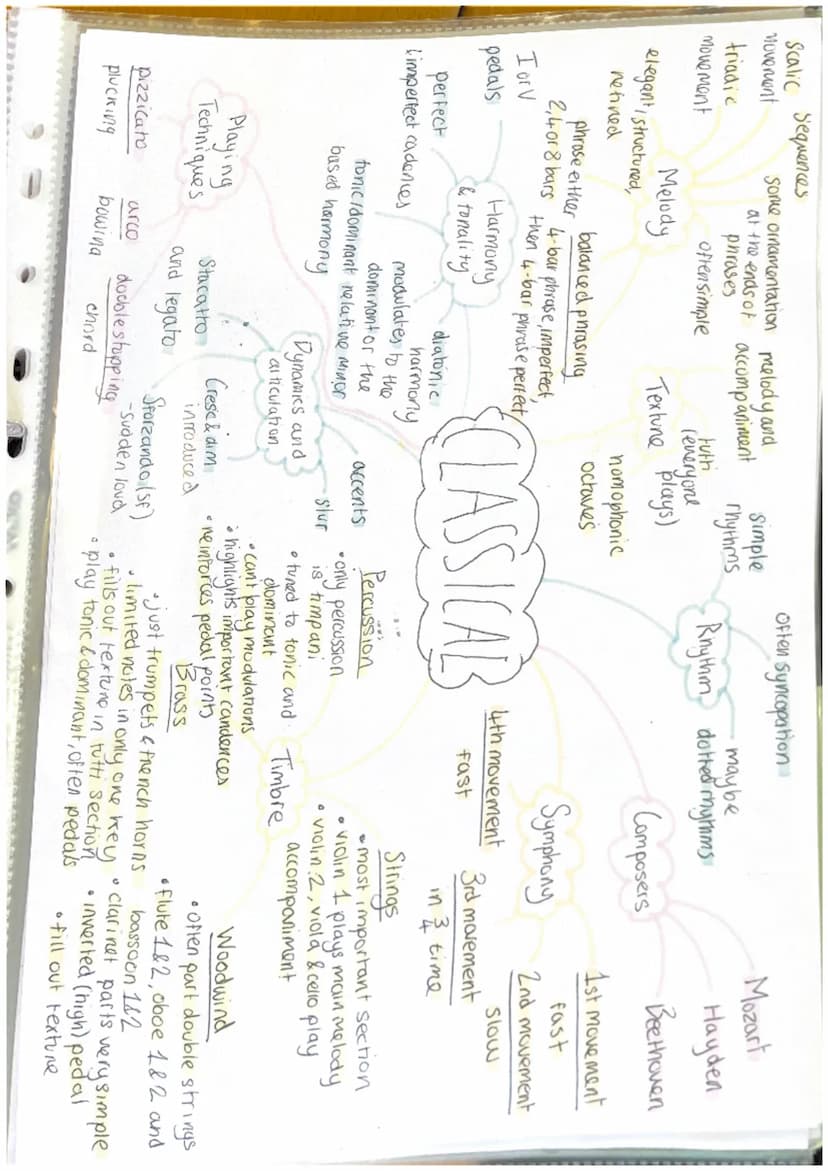 CLASSICAL
Melody
Scalic
movement
Sequences
triadic
movement
some ornamentation
at the ends of
phrases
elegant/structured,
refined
often simple
balanced phrasing
phrase either
2, 4 or 8 bars
4-bar phrase, imperfect,
then 4-bar phrase perfect
Texture
melody and
accompaniment
tutti
(everyone
plays)
homophonic
octaves
Rhythm
simple
rhythms
often syncopation
maybe
dotted rhythms
Composers
Mozart
Hayden
Beethoven
Symphony
1st movement
fast
2nd movement
slow
3rd movement
in 3/4 time
4th movement
fast
Harmony
& tonality
I or V
pedals
perfect
& imperfect cadences
tonic/dominant
based harmony
modulates to the
dominant or the
relative minor
diatonic
harmony
Dynamics and
articulation
Stacatto
and legato
Cresc & dim
introduced
Sforzando (sf)
- sudden loud
slur
accents
Playing
Techniques
pizzicato
plucking
arco
bowing
double stopping
chord
Timbre
Percussion
• only percussion
is timpani
• tuned to tonic and
dominant
• cant play modulations
• highlights important candences
• reinforces pedal points
Brass
• just trumpets & french horns
• limited notes in only one key
• fills out texture in tutti section
• play tonic & dominant, often pedals
Strings
• most important section
• violin 1 plays main melody
• violin 2, viola & cello play
accompaniment
Woodwind
• often part double strings
• flute 1&2, oboe 1&2 and
bassoon 1&2
• clarinet parts very simple
• inverted (high) pedal
• fill out texture